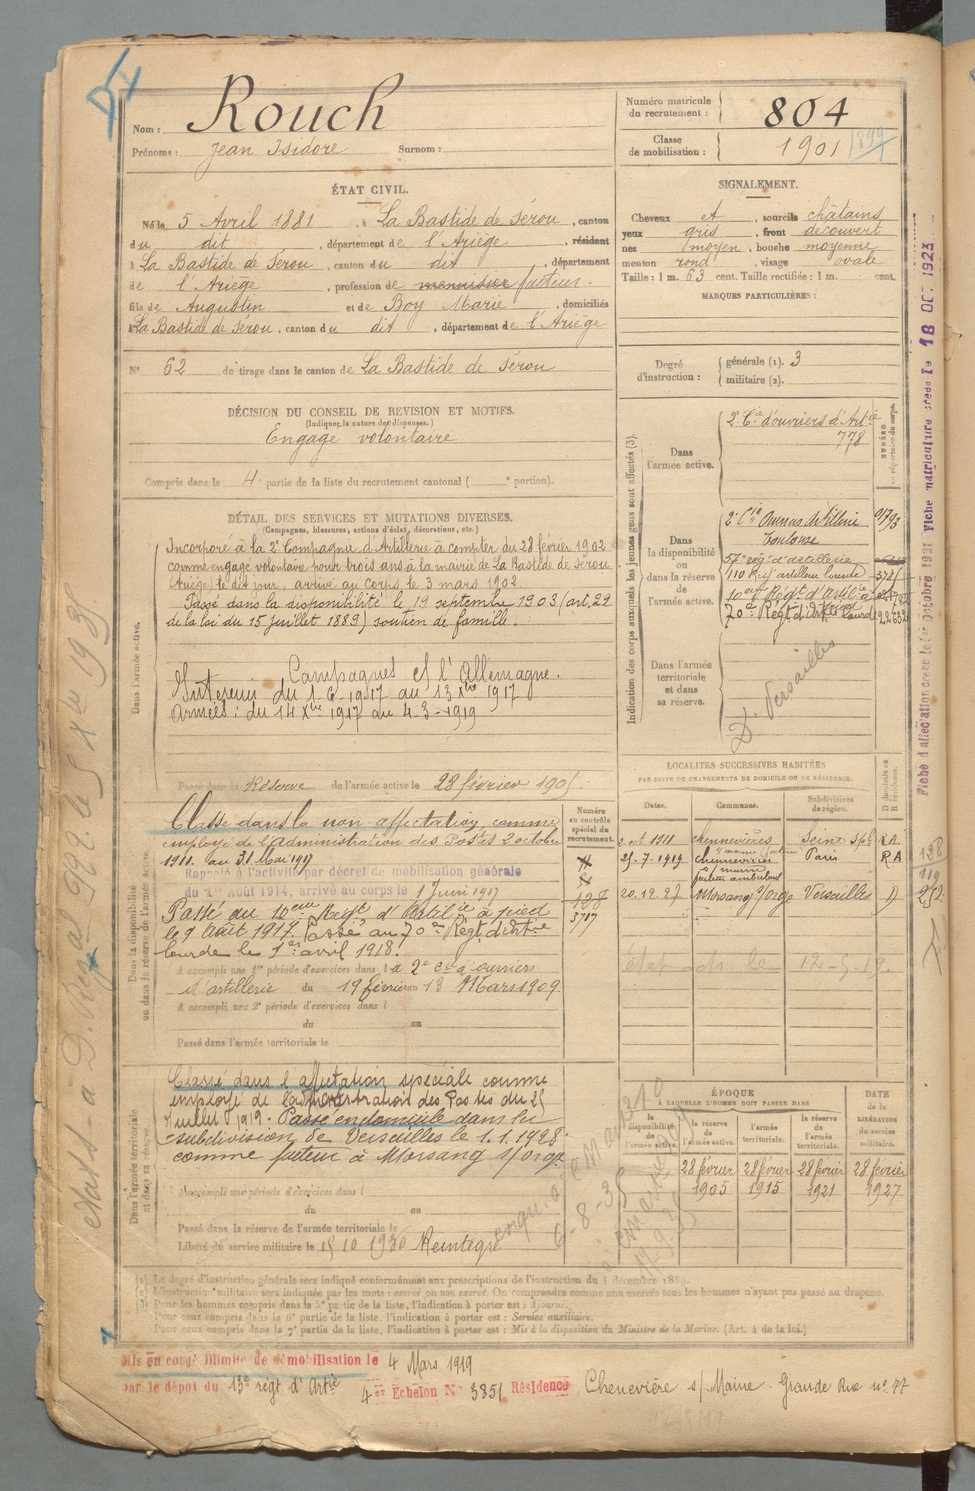 Nom : Rouch
Prénoms : Jean Isidore Surnom :
Numéro matricule du recrutement : 804
Classe de mobilisation : 1901 1899
ÉTAT CIVIL.
Né le 5 Avril 1881, à La Bastide de Sérou, canton
du dit, département de l'Ariège, résident
à La Bastide de Sérou, canton du dit, département
de l'Ariège, profession de menuisier facteur.
fils de Augustin et de Boy Marie, domiciliés
à La Bastide de Sérou, canton du dit, département de l'Ariège
N° 62 de tirage dans le canton de La Bastide de Sérou
SIGNALEMENT.
Cheveux et, sourcils châtains
yeux gris, front découvert
nez moyen, bouche moyenne
menton rond, visage ovale
Taille : 1 m. 63 cent. Taille rectifiée : 1 m. cent.
MARQUES PARTICULIÈRES :
Degré d'instruction : générale (1). 3
militaire (2).
DÉCISION DU CONSEIL DE REVISION ET MOTIFS.
(Indiquer la nature des dispenses.)
Engagé volontaire
Compris dans la 4e partie de la liste du recrutement cantonal ( e portion).
DÉTAIL DES SERVICES ET MUTATIONS DIVERSES.
(Campagnes, blessures, actions d'éclat, décorations, etc.)
Dans l'armée active.
Incorporé à la 2e Compagnie d'Artillerie à compter du 28 février 1902
comme engagé volontaire pour trois ans à la mairie de La Bastide de Sérou
(Ariège) le dit jour, arrivé au corps le 3 mars 1902.
Passé dans la disponibilité le 19 septembre 1903 (art. 29
de la loi du 15 juillet 1889) soutien de famille.
Campagnes cf l'Allemagne.
Intérieur du 1-6-1917 au 13 Xbre 1917
Armées : du 14 Xbre 1917 au 4-3-1919
Passé dans la Réserve de l'armée active le 28 février 1905.
Indication des corps auxquels les jeunes gens sont affectés (3).
NUMÉRO au répertoire du corps.
Dans l'armée active.
2e Cie d'ouvriers d'Artie
778
Dans la disponibilité ou dans la réserve de l'armée active.
2e Cie Ouvriers Artillerie
Toulouse
57e rég. d'artillerie
110 Reg. artillerie lourde
10e Régt d'Artie à pied
70e Régt d'Artie lourde
Dans l'armée territoriale et dans sa réserve.
D. Versailles
Dans la disponibilité ou dans la réserve de l'armée active.
Classé dans la non-affectation comme
employé de l'administration des Postes 2 octobre
1911. au 31 Mai 1917
Rappelé à l'activité par décret de mobilisation générale
du 1er Août 1914, arrivé au corps le 1 Juin 1917
Passé au 10eme Régt d'Artillie à pied
le 9 Août 1917. Passé au 70e Régt d'Artie
lourde le 1er avril 1918.
A accompli une 1re période d'exercices dans la 2e Cie d'ouvriers
d'artillerie du 19 février au 13 Mars 1909
A accompli une 2e période d'exercices dans l
du au
Passé dans l'armée territoriale le
Numéro au contrôle spécial du recrutement.
128
3717
LOCALITÉS SUCCESSIVES HABITÉES
PAR SUITE DE CHANGEMENTS DE DOMICILE OU DE RÉSIDENCE.
Dates. Communes. Subdivisions de région. D domicile ou R résidence.
2 oct 1911 Chennevières Seine R A
25-7-1919 Chennevières s/ marne Paris R A
facteur ambulant
20.12.27 Morsang s/ Orge Versailles D
12-5-19.
Dans l'armée territoriale et dans sa réserve.
Classé dans l'affectation spéciale comme
employé de l'administration des Postes du 25
juillet 1919. Passé en domicile dans la
subdivision de Versailles le 1.1.1928.
comme facteur à Morsang s/ orge
A accompli une période d'exercices dans l
du au
Passé dans la réserve de l'armée territoriale le
Libéré du service militaire le 15 10 1930 Réintégré
ÉPOQUE
À LAQUELLE L'HOMME DOIT PASSER DANS
la disponibilité de l'armée active. la réserve de l'armée active. l'armée territoriale. la réserve de l'armée territoriale. DATE de la LIBÉRATION du service militaire.
28 février 1905 28 février 1915 28 février 1921 28 février 1927
(1) Le degré d'instruction générale sera indiqué conformément aux prescriptions de l'instruction du 4 décembre 1889.
(2) L'instruction militaire sera indiquée par les mots : exercé ou non exercé. On comprendra comme non exercés tous les hommes n'ayant pas passé au drapeau.
(3) Pour les hommes compris dans la 5e partie de la liste, l'indication à porter est : Ajourné.
Pour ceux compris dans la 6e partie de la liste, l'indication à porter est : Service auxiliaire.
Pour ceux compris dans la 7e partie de la liste, l'indication à porter est : Mis à la disposition du Ministre de la Marine. (Art. 4 de la loi.)
Mis en congé illimité de démobilisation le 4 Mars 1919
par le dépôt du 13e régt d'Artie 4er Echelon N° 3851 Résidence Chenevière s/ Marne Grande Rue n° 77
Fiche d'affectation créée le 1er Octobre 1921 Fiche matriculaire créée le 18 OCT. 1923